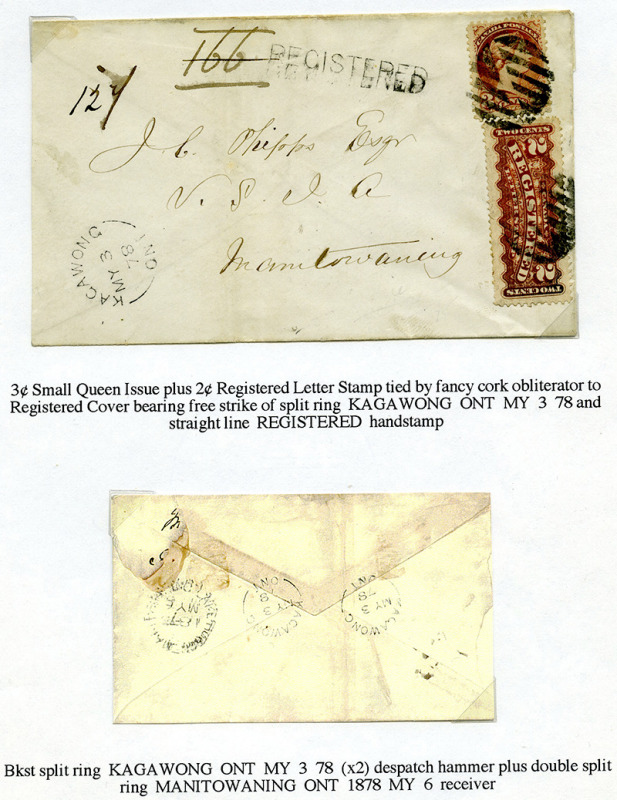 166
REGISTERED
REGISTERED
127
CANADA POSTAGE
J. C. Phipps Esqr
V. S. I. A
Manitowaning
TWO CENTS
2 REGISTERED 2
TWO CENTS
KAGAWONG ONT
MY 3
78
3¢ Small Queen Issue plus 2¢ Registered Letter Stamp tied by fancy cork obliterator to
Registered Cover bearing free strike of split ring KAGAWONG ONT MY 3 78 and
straight line REGISTERED handstamp
KAGAWONG ONT
MY 3
78
KAGAWONG ONT
MY 3
78
Bkst split ring KAGAWONG ONT MY 3 78 (x2) despatch hammer plus double split
ring MANITOWANING ONT 1878 MY 6 receiver